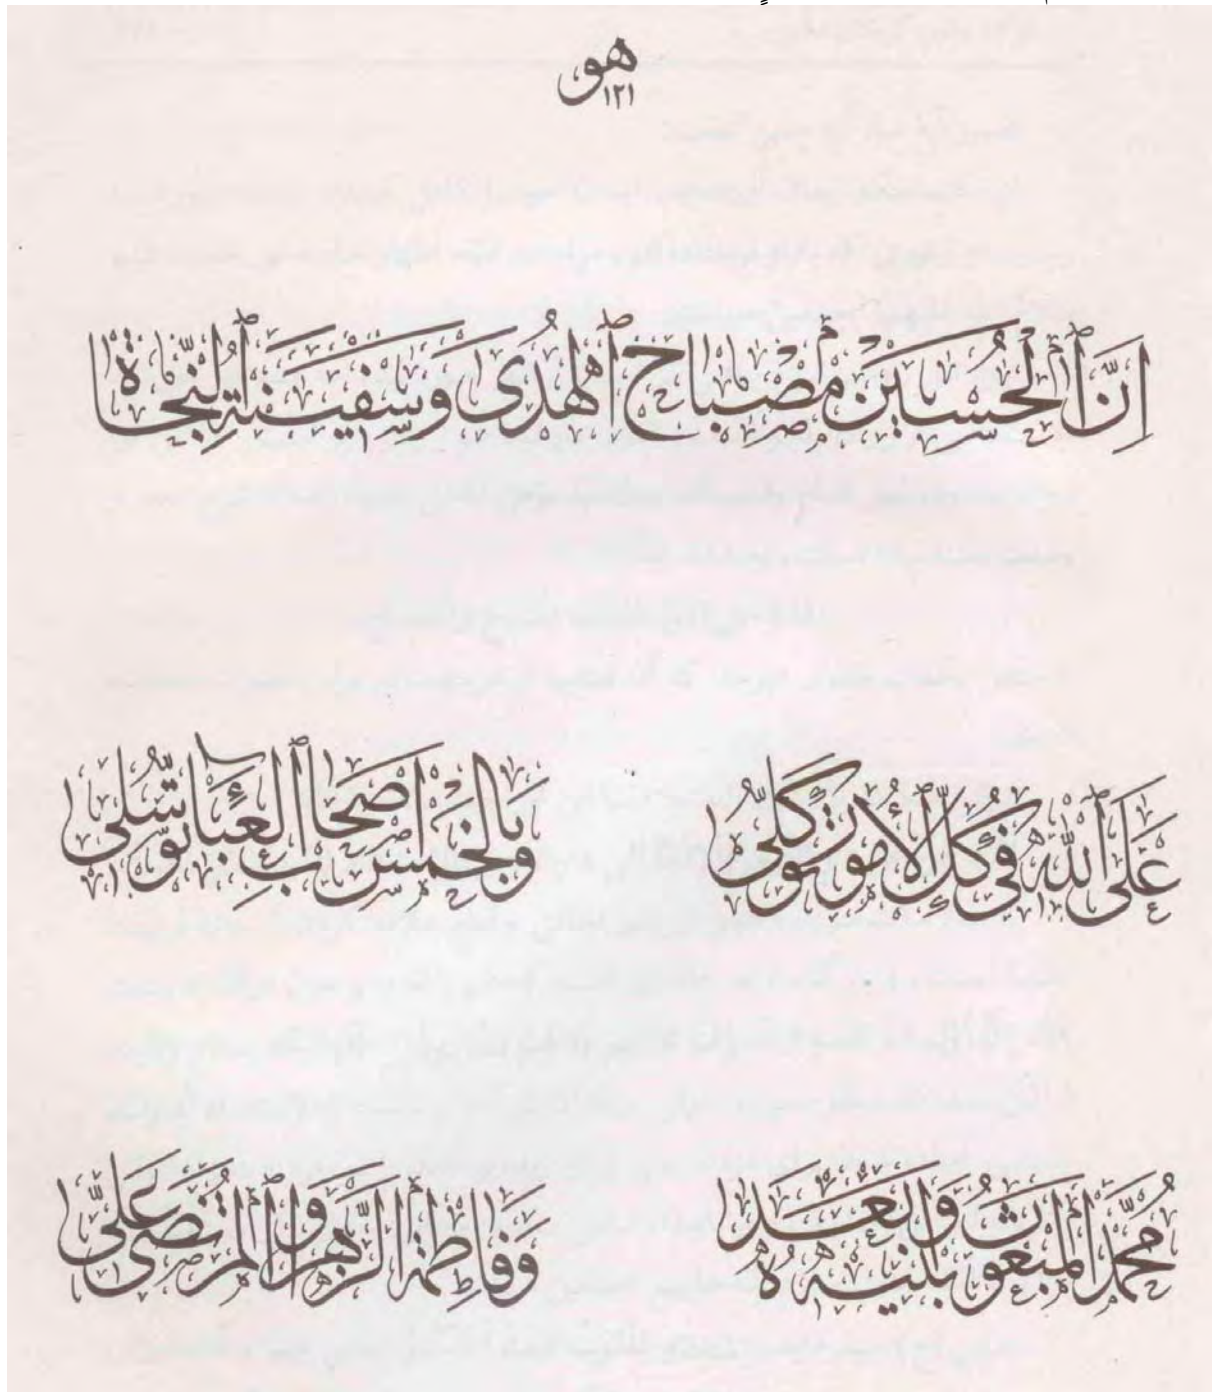 هو
۱۲۱
اِنَّ الْحُسَيْنَ مِصْبَاحُ الْهُدٰى وَسَفِينَةُ النَّجَاة
عَلَى اللهِ فِي كُلِّ الْأُمُورِ تَوَكُّلِي وَبِالْخَمْسِ اَصْحَابِ الْعَبَاءِ تَوَسُّلِي
مُحَمَّدٍ الْمَبْعُوثِ وَابْنَيْهِ بَعْدَهُ وَفَاطِمَةِ الزَّهْرَاءِ وَالْمُرْتَضٰى عَلِي